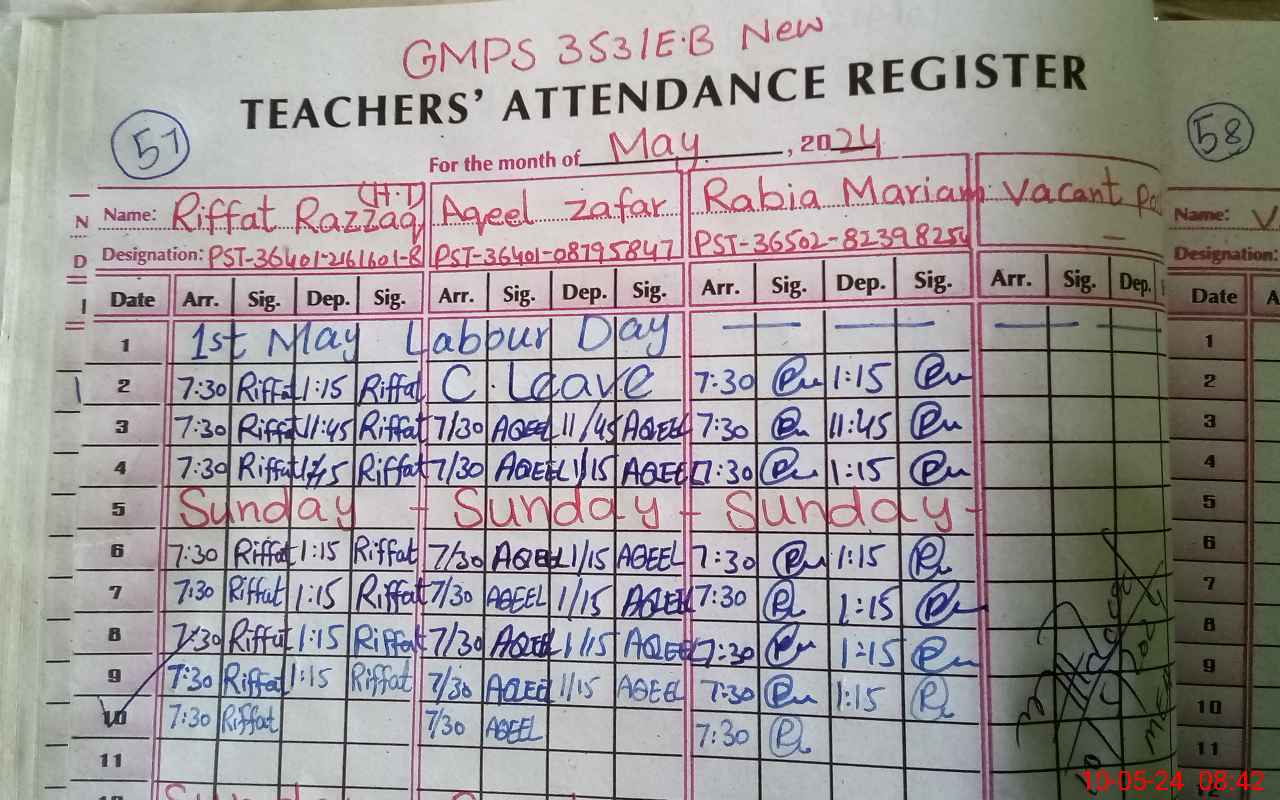 GMPS 353/E.B New
TEACHERS' ATTENDANCE REGISTER
57
58
For the month of May, 2024
Name: Riffat Razzaq (H.T) Aqeel zafar Rabia Mariam Vacant
Designation: PST-36401-261601-R PST-36401-08795847 PST-36502-82398254 —
Date Arr. Sig. Dep. Sig. Arr. Sig. Dep. Sig. Arr. Sig. Dep. Sig. Arr. Sig. Dep.
1 1st May Labour Day
2 7:30 Riffat 1:15 Riffat C. Leave 7:30 1:15
3 7:30 Riffat 11:45 Riffat 7/30 AQEEL 11/45 AQEEL 7:30 11:45
4 7:30 Riffat Riffat 7/30 AQEEL 1/15 AQEEL 7:30 1:15
5 Sunday - Sunday - Sunday -
6 7:30 Riffat 1:15 Riffat 7/30 AQEEL 1/15 AQEEL 7:30 1:15
7 7:30 Riffat 1:15 Riffat 7/30 AQEEL 1/15 AQEEL 7:30 1:15
8 7:30 Riffat 1:15 Riffat 7/30 AQEEL 1/15 AQEEL 7:30 1:15
9 7:30 Riffat 1:15 Riffat 7/30 AQEEL 1/15 AQEEL 7:30 1:15
10 7:30 Riffat 7/30 AQEEL 7:30
11
N
D
Name:
Designation:
Date
1
2
3
4
5
6
7
8
9
10
11
12
10-05-24 08:42